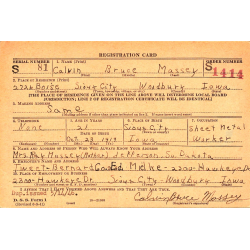 REGISTRATION CARD
SERIAL NUMBER 1. NAME (Print) ORDER NUMBER
S 81 Calvin Bruce Massey S 1414
2. PLACE OF RESIDENCE (Print)
2726 Boise Sioux City Woodbury Iowa
[THE PLACE OF RESIDENCE GIVEN ON THE LINE ABOVE WILL DETERMINE LOCAL BOARD
JURISDICTION; LINE 2 OF REGISTRATION CERTIFICATE WILL BE IDENTICAL]
3. MAILING ADDRESS
Same
4. TELEPHONE 5. AGE IN YEARS 6. PLACE OF BIRTH 7. OCCUPATION
None 21 Sioux City Sheet Metal
DATE OF BIRTH
Oct 23 1919 Iowa Worker
8. NAME AND ADDRESS OF PERSON WHO WILL ALWAYS KNOW YOUR ADDRESS
Mrs Ray Massey (Mother) Jefferson, So. Dakota
9. EMPLOYER'S NAME AND ADDRESS
10. PLACE OF EMPLOYMENT OR BUSINESS
2300-Hawkeye Dr. Sioux City - Woodbury Iowa
D. S. S. Form 1
Calvin Bruce Massey